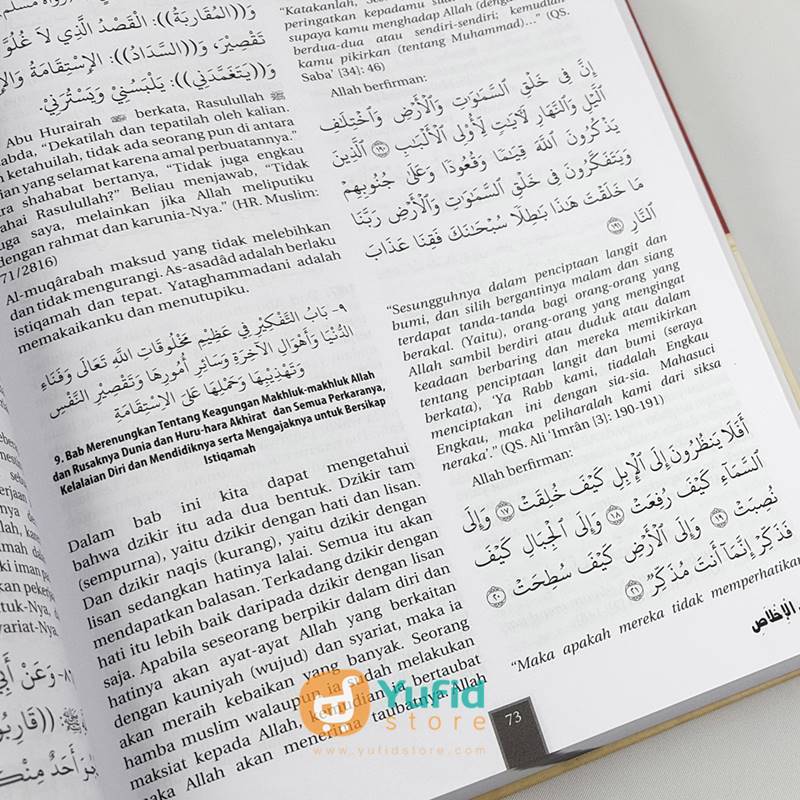 وَ((المُقَارَبَةُ)): القَصْدُ الَّذِي لاَ غُلُوَّ
تَقْصِيْرَ، وَ((السَّدَادُ)): الإِسْتِقَامَةُ
وَ((يَتَغَمَّدَنِي)): يَلْبَسُنِيْ وَيَسْتُرَنِيْ.
Abu Hurairah ﷺ berkata, Rasulullah ﷺ
abda, "Dekatilah dan tepatilah oleh kalian.
ketahuilah, tidak ada seorang pun di antara
ian yang selamat karena amal perbuatannya."
ra shahabat bertanya, "Tidak juga engkau
ahai Rasulullah?" Beliau menjawab, "Tidak
uga saya, melainkan jika Allah meliputiku
dengan rahmat dan karunia-Nya." (HR. Muslim:
71/2816)
Al-muqârabah maksud yang tidak melebihkan
dan tidak mengurangi. As-asadâd adalah berlaku
istiqamah dan tepat. Yataghammadani adalah
memakaikanku dan menutupiku.
٩- بَابُ التَّفْكِيْرِ فِي عَظِيْمِ مَخْلُوقَاتِ اللَّهِ تَعَالَى وَفَنَاءِ
الدُّنْيَا وَأَهْوَالِ الْآخِرَةِ وَسَائِرِ أُمُورِهَا وَتَقْصِيْرِ النَّفْسِ
وَتَهْذِيْبِهَا وَحَمْلِهَا عَلَى الْإِسْتِقَامَةِ
9. Bab Merenungkan Tentang Keagungan Makhluk-makhluk Allah
dan Rusaknya Dunia dan Huru-hara Akhirat dan Semua Perkaranya,
Kelalaian Diri dan Mendidiknya serta Mengajaknya untuk Bersikap
Istiqamah
Dalam bab ini kita dapat mengetahui
bahwa dzikir itu ada dua bentuk. Dzikir tam
(sempurna), yaitu dzikir dengan hati dan lisan.
Dan dzikir naqis (kurang), yaitu dzikir dengan
lisan sedangkan hatinya lalai. Semua itu akan
mendapatkan balasan. Terkadang dzikir dengan
hati itu lebih baik daripada dzikir dengan lisan
saja. Apabila seseorang berpikir dalam diri dan
hatinya akan ayat-ayat Allah yang berkaitan
dengan kauniyah (wujud) dan syariat, maka ia
akan meraih kebaikan yang banyak. Seorang
hamba muslim walaupun ia sudah melakukan
maksiat kepada Allah, kemudian ia bertaubat
maka Allah akan menerima taubatnya. Allah
"Katakanlah,
peringatkan kepadamu
supaya kamu menghadap Allah (dengan
berdua-dua atau sendiri-sendiri; kemudian
kamu pikirkan (tentang Muhammad)..." (QS.
Saba' [34]: 46)
Allah berfirman:
إِنَّ فِي خَلْقِ السَّمَوَتِ وَالْأَرْضِ وَاخْتِلَفِ
الَّيْلِ وَالنَّهَارِ لَآيَتٍ لِّأُوْلِي الْأَلْبَبِ ١٩٠ الَّذِينَ
يَذْكُرُونَ اللَّهَ قِيَمًا وَقُعُودًا وَعَلَى جُنُوبِهِمْ
وَيَتَفَكَّرُونَ فِي خَلْقِ السَّمَوَتِ وَالْأَرْضِ رَبَّنَا
مَا خَلَقْتَ هَذَا بَطِلًا سُبْحَنَكَ فَقِنَا عَذَابَ
النَّارِ ١٩١
"Sesungguhnya dalam penciptaan langit dan
bumi, dan silih bergantinya malam dan siang
terdapat tanda-tanda bagi orang-orang yang
berakal. (Yaitu), orang-orang yang mengingat
Allah sambil berdiri atau duduk atau dalam
keadaan berbaring dan mereka memikirkan
tentang penciptaan langit dan bumi (seraya
berkata), 'Ya Rabb kami, tiadalah Engkau
menciptakan ini dengan sia-sia. Mahasuci
Engkau, maka peliharalah kami dari siksa
neraka'." (QS. Ali 'Imrân [3]: 190-191)
Allah berfirman:
أَفَلَا يَنظُرُونَ إِلَى الْإِبِلِ كَيْفَ خُلِقَتْ ١٧ وَإِلَى
السَّمَاءِ كَيْفَ رُفِعَتْ ١٨ وَإِلَى الْجِبَالِ كَيْفَ
نُصِبَتْ ١٩ وَإِلَى الْأَرْضِ كَيْفَ سُطِحَتْ ٢٠
فَذَكِّرْ إِنَّمَا أَنتَ مُذَكِّرٌ ٢١
"Maka apakah mereka tidak memperhatikan
الإخلاص
73
Yufid
store
www.yufidstore.com